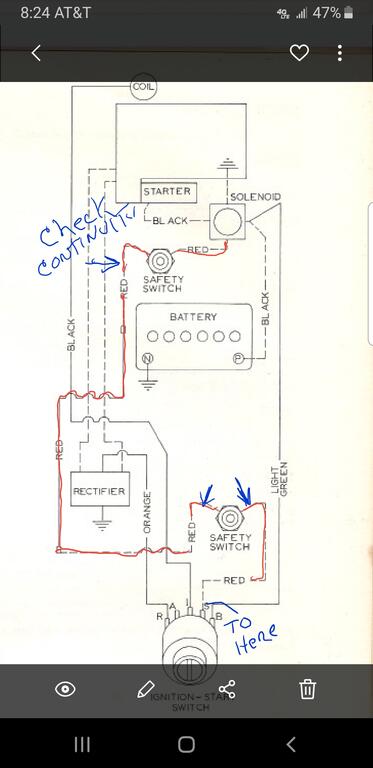 8:24 AT&T 4G LTE 47%
COIL
STARTER
SOLENOID
BLACK
Check
CONTINUITY
RED
SAFETY
SWITCH
RED
BATTERY
BLACK
BLACK
N
P
RED
LIGHT
GREEN
RECTIFIER
ORANGE
RED
SAFETY
SWITCH
RED
R A I S B
TO
Here
IGNITION-START
SWITCH